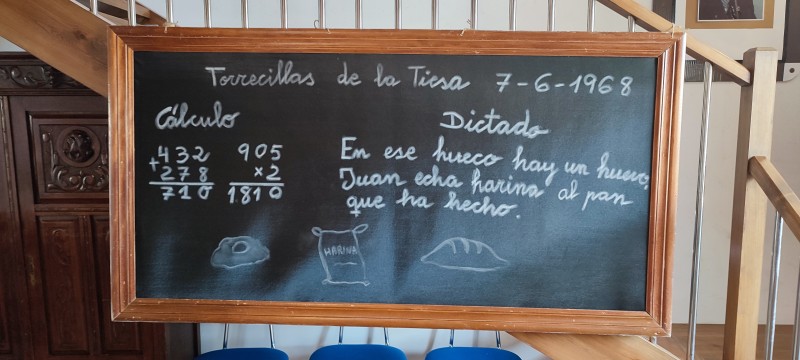 Torrecillas de la Tiesa 7-6-1968
Cálculo
+432
278
710
905
×2
1810
Dictado
En ese hueco hay un huevo,
Juan echa harina al pan
que ha hecho.
HARINA